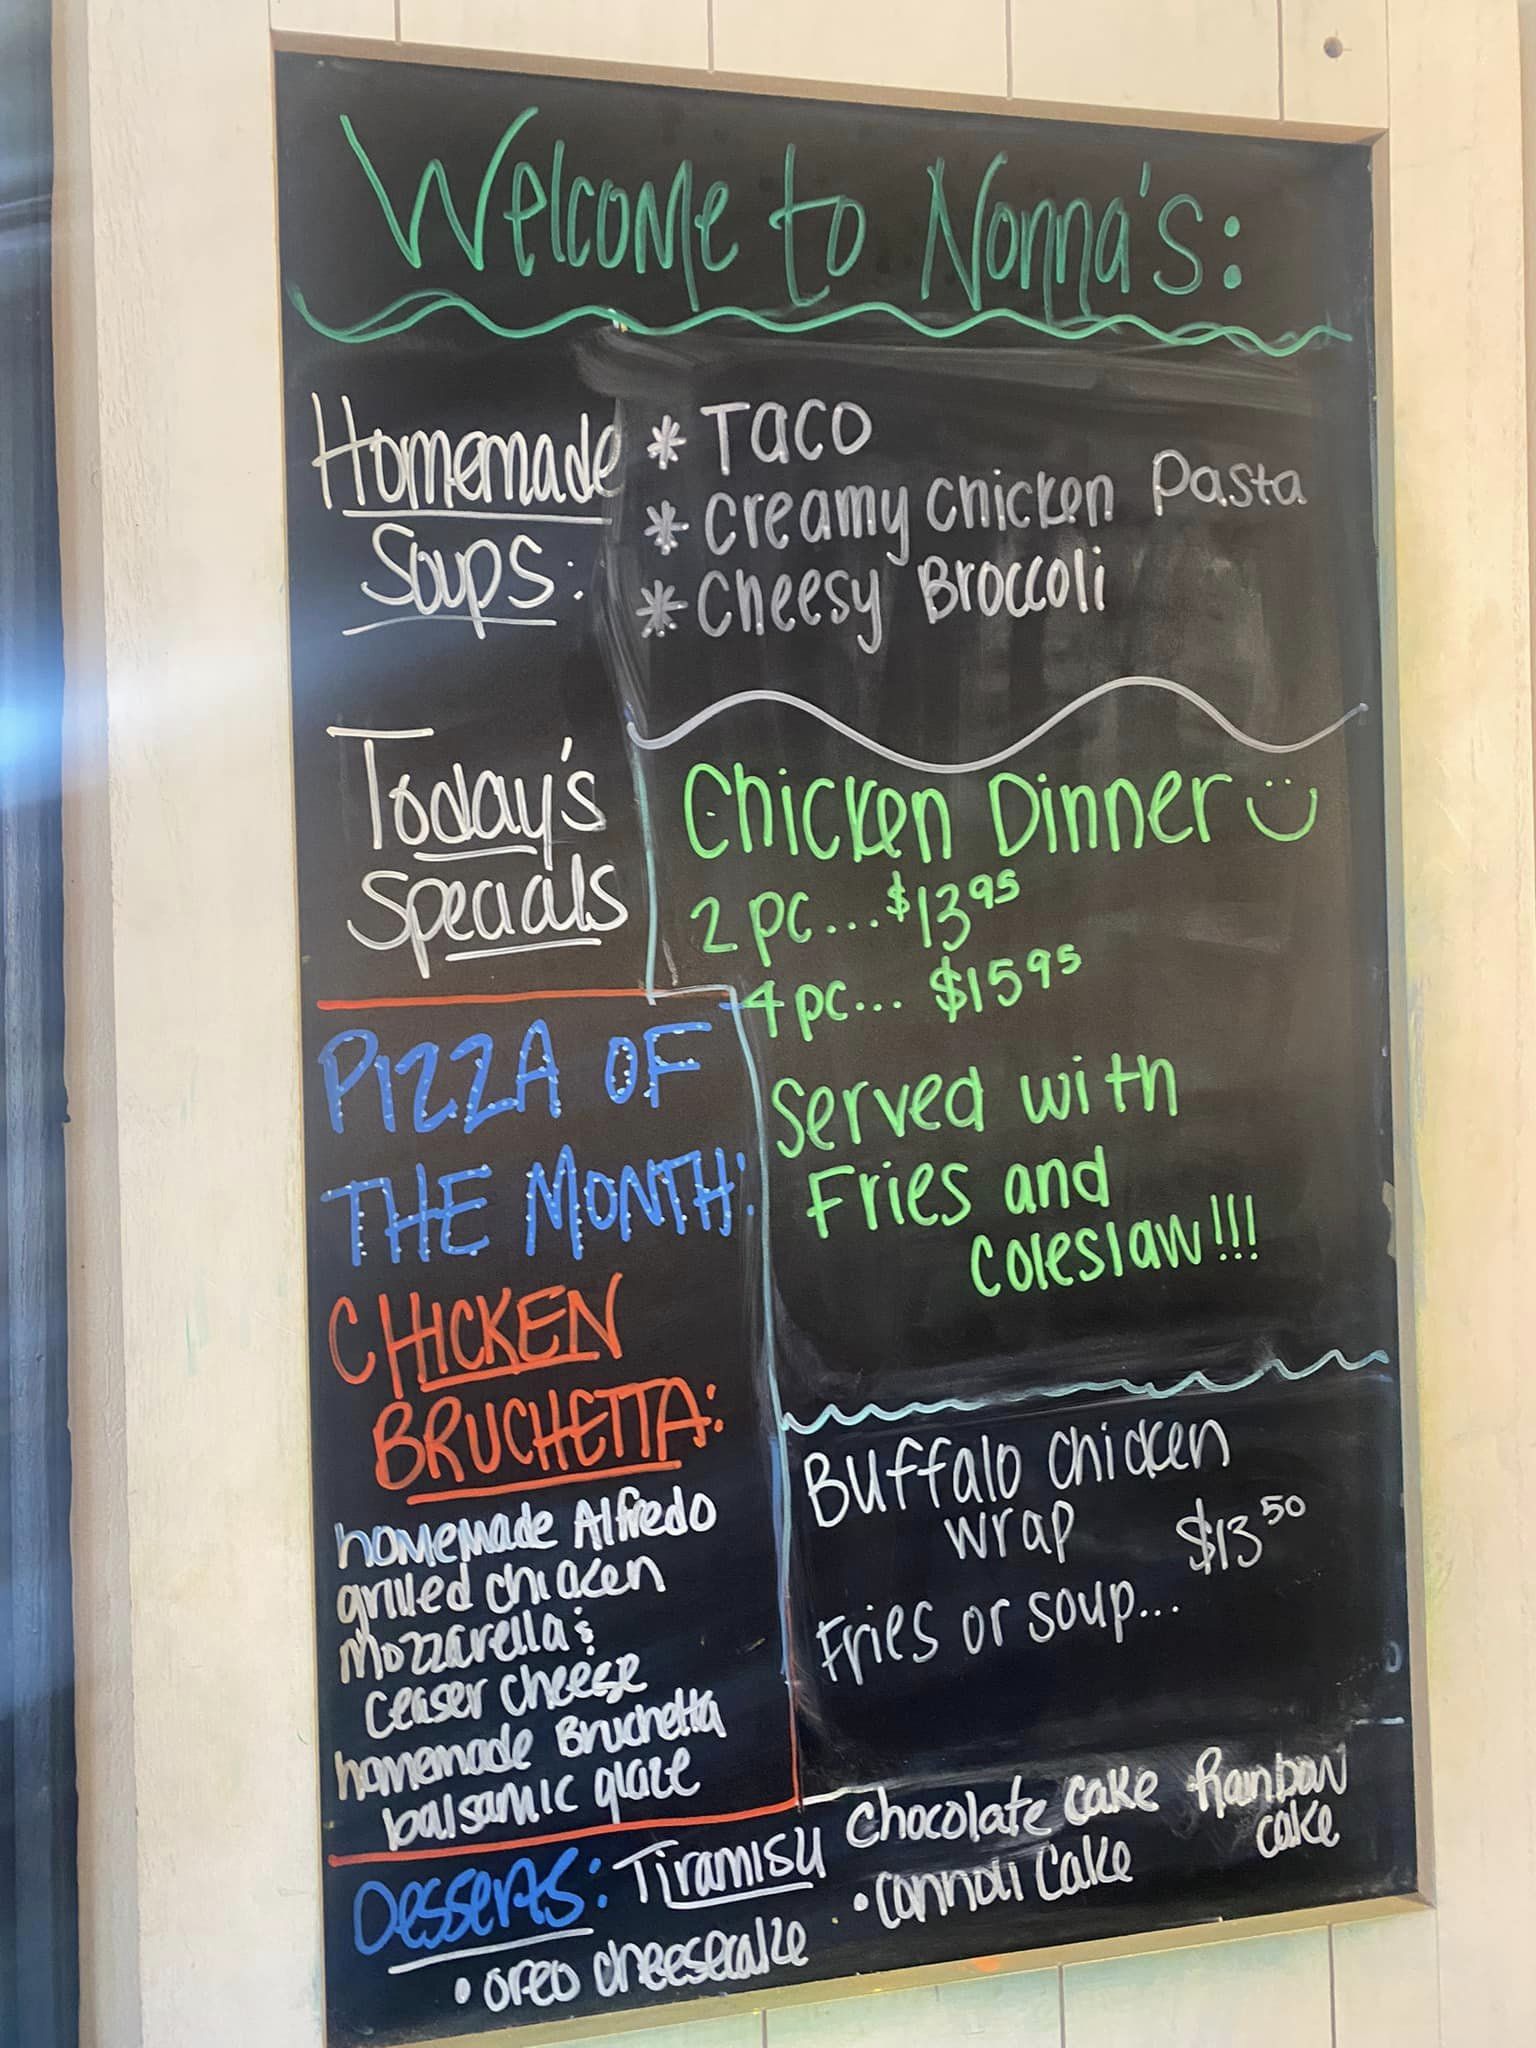 Welcome to Nonna's:
Homemade
Soups:
* Taco
* Creamy Chicken Pasta
* Cheesy Broccoli
Today's
Specials
Chicken Dinner
2 pc...$13 95
4 pc... $15 95
Served with
Fries and
Coleslaw!!!
PIZZA OF
THE MONTH:
CHICKEN
BRUCHETTA:
homemade Alfredo
grilled chicken
mozzarella &
ceaser cheese
homemade Bruchetta
balsamic glaze
Buffalo chicken
wrap $13 50
Fries or soup...
Desserts: Tiramisu Chocolate cake Rainbow cake
• oreo cheesecake • Connoli Cake